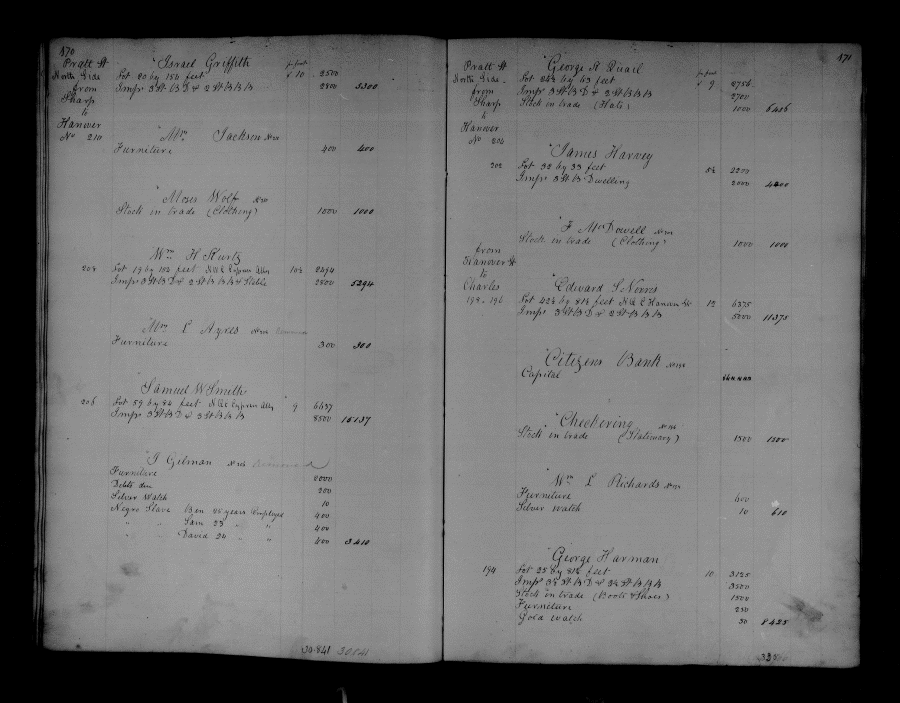 470
Pratt St Israel Griffith pr foot
North Side Lot 20 by 154 feet 10 2500
from Imps 3 St B D & 2 St B B B 2800 5300
Sharp
to
Hanover
No 210 Mrs Jackson
Furniture 400 400
Moses Wolf
Stock in trade (Clothing) 1000 1000
Wm H Kurtz
208 Lot 19 by feet Cypress Alley 2494
Imps 3 St B D & 2 St B B B & Stable 2800 5294
Mrs L Ayres
Furniture 300 300
Samuel W Smith
206 Lot 59 by 84 feet Cypress Alley 9 6637
Imps 3 St B D & 3 St B B B 8500 15137
J Gilman Removed
Furniture 2000
Debts due 200
Silver Watch 10
Negro Slave Ben years Employed 400
" " Sam 23 " " 400
" " David 24 " " 400 3410
30.841 30841
471
Pratt St George R Quail pr foot
North Side Lot by 63 feet 9 2756
from Imps 3 St B D & 2 St B B B 2700
Sharp Stock in trade (Hats) 1000 6456
to
Hanover
No 206
James Harvey
202 Lot 33 by 33 feet 2200
Imps 3 St B Dwelling 2000 4200
F McDowell
Stock in trade (Clothing) 1000 1000
from
Hanover St
to
Charles Edward S Norris
Lot 42½ by 81½ feet Hanover St 12 6375
Imps 3 St B D & 2 St B B B 5000 11375
Citizens Bank
Capital
Checkering
Stock in trade (Stationary) 1500 1500
Wm L Richards
Furniture 600
Silver Watch 10 610
George Harman
194 Lot 25 by 81½ feet 10 3125
Imps 3½ St B D & St B B B 3500
Stock in trade (Boots & Shoes) 1500
Furniture 250
Gold Watch 50 8425